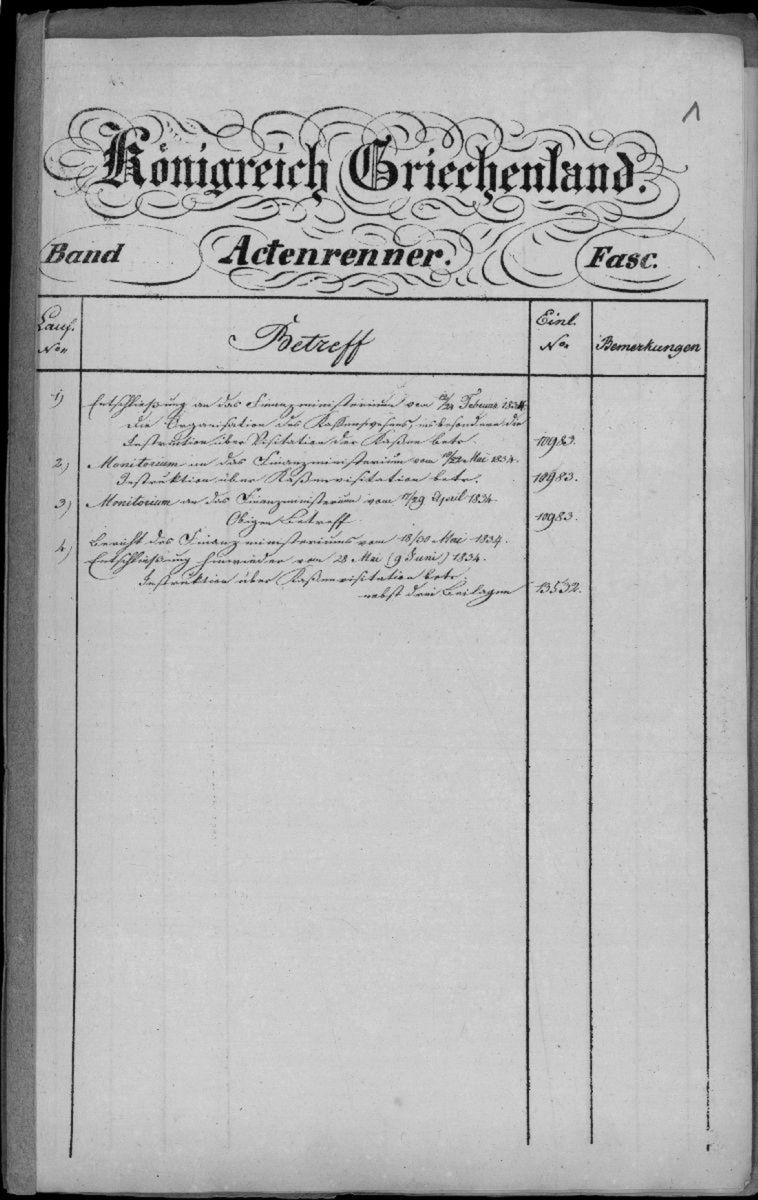 1
Königreich Griechenland.
Band Actenrenner. Fasc.
Lauf. Nro Betreff Einl. Nro Bemerkungen
1) Entschließung an das Finanzministerium vom 12/24 Februar 1834.
die Organisation des Kassenwesens, insbesondere die
Instruction über Visitation der Kassen betr. 10983.
2) Monitorium an das Finanzministerium vom 10/22 Mai 1834.
Instruktion über Kassenvisitation betr. 10983.
3) Monitorium an das Finanzministerium vom 17/29 April 1834.
Obigen Betreff. 10983.
4) Bericht des Finanzministeriums vom 18/30 Mai 1834.
Entschließung hierwieder vom 28 Mai (9 Juni) 1834.
Instruktion über Kassenvisitation betr.
nebst drei Beilagen 13532.